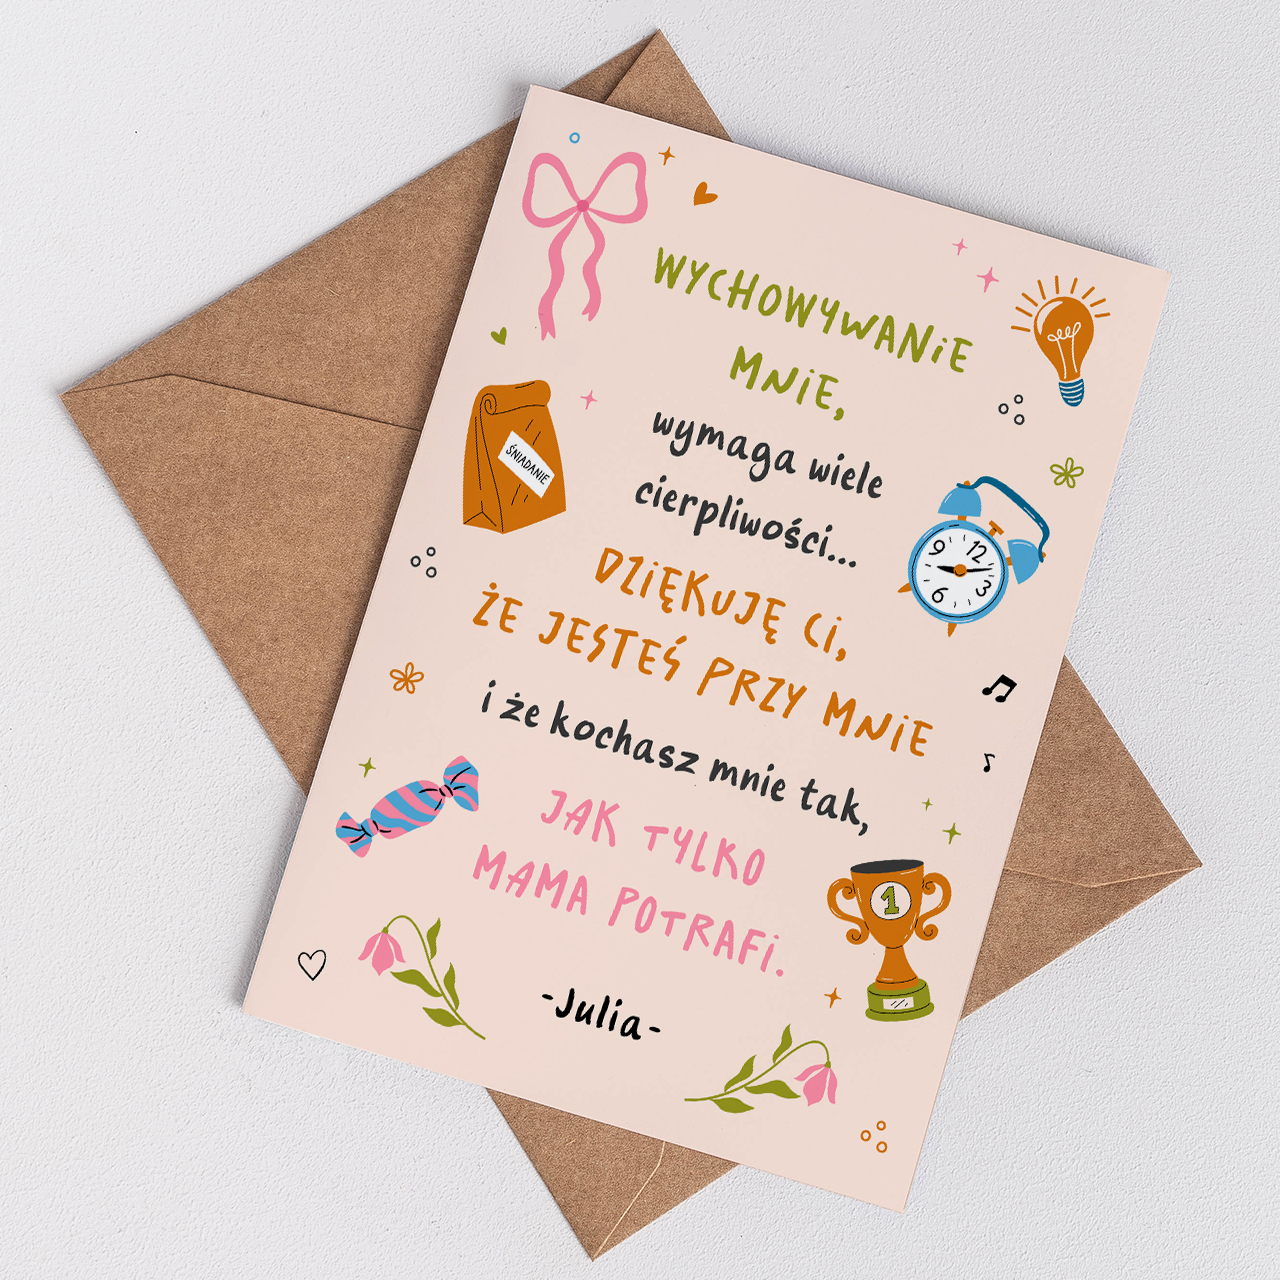 WYCHOWYWANiE
MNiE,
wymaga wiele
cierpliwości...
DZiĘKUJĘ Ci,
ŻE JESTEŚ PRZY MNiE
i że kochasz mnie tak,
JAK TYLKO
MAMA POTRAFi.
-Julia-
ŚNIADANIE
12
3
6
9
1